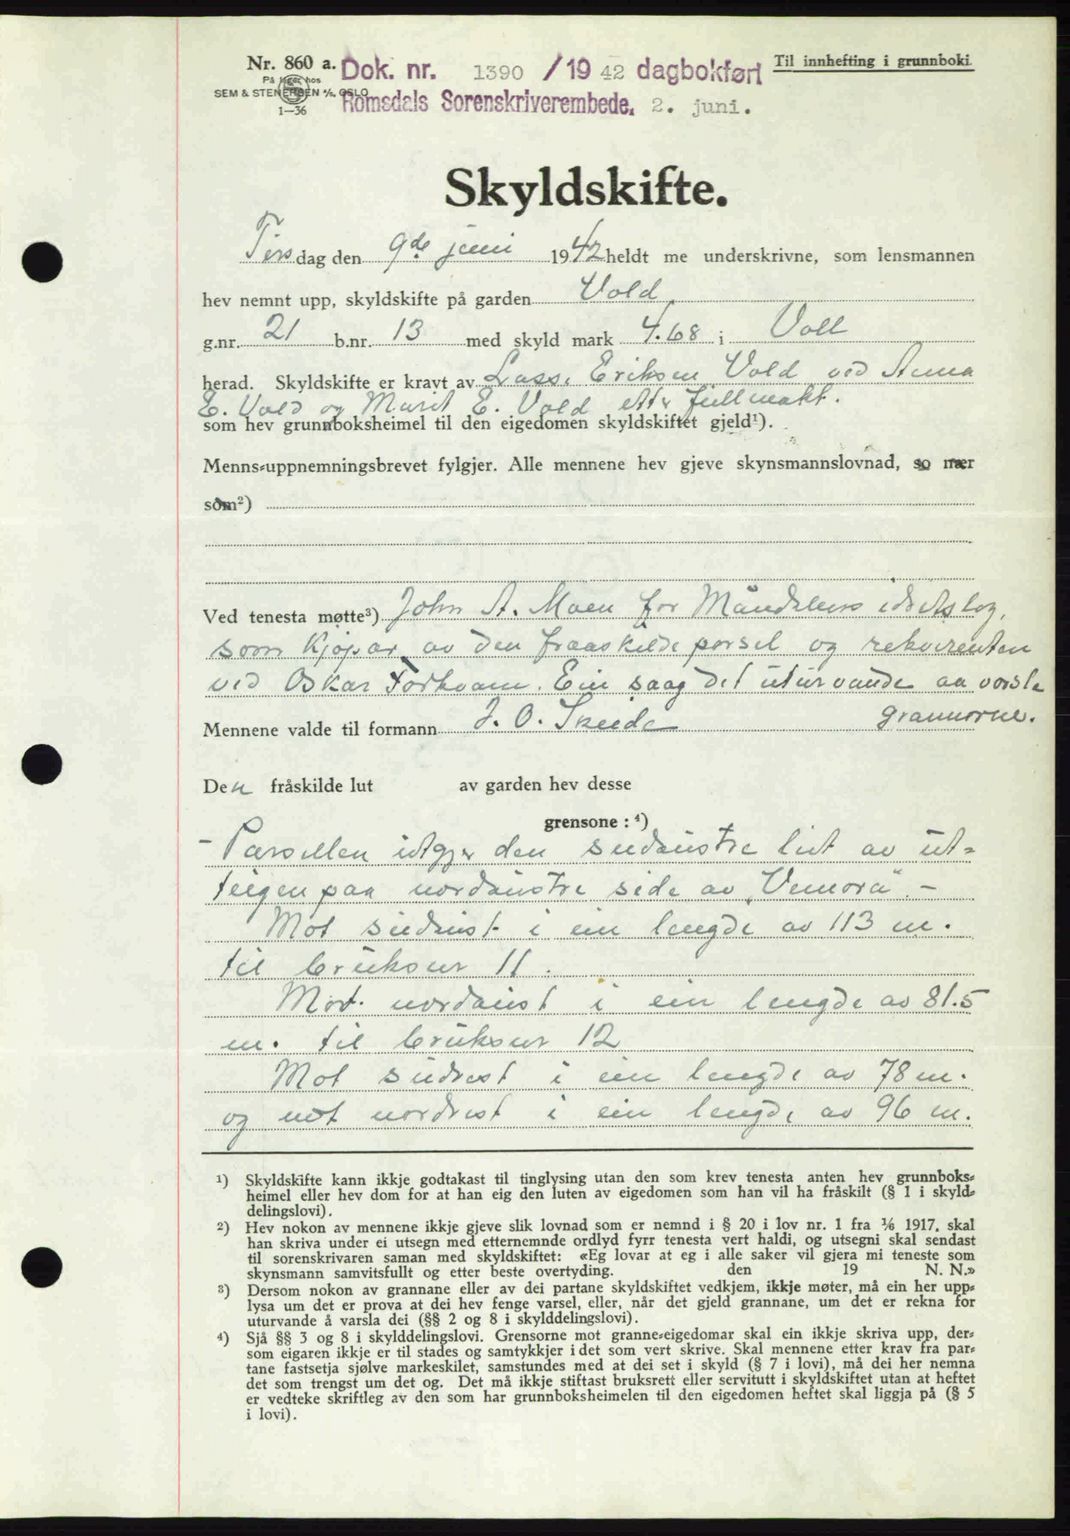 Nr. 860 a.
På lager hos
SEM & STENERSEN A/S, OSLO
1—36
Dok. nr. 1390 / 19 42 dagbokført
Romsdals Sorenskriverembede. 2. juni.
Til innhefting i grunnboki.
Skyldskifte.
Tirsdag den 9de juni 1942 heldt me underskrivne, som lensmannen
hev nemnt upp, skyldskifte på garden Vold
g.nr. 21 b.nr. 13 med skyld mark 4.68 i Voll
herad. Skyldskifte er kravt av Lass. Eriksen Vold ved Anna
E. Vold og Marit E. Vold ettr fullmakt.
som hev grunnboksheimel til den eigedomen skyldskiftet gjeld¹).
Menns=uppnemningsbrevet fylgjer. Alle mennene hev gjeve skynsmannslovnad, so nær
som²)
Ved tenesta møtte³) John A. Moen for Måndalens idrdtslag,
som Kjøpar av den fraaskilde parsel og rekvirenten
ved Oskar Forkvam. Ein saag det uturvande aa varsle
grannorne.
Mennene valde til formann J. O. Skeide
Den fråskilde lut av garden hev desse
grensone : ⁴)
- Parsellen utgjer den sudaustre lut av ut=
teigen paa nordaustre side av "Vemora". -
Mot sudaust i ein lengde av 113 m.
til bruksnr 11.
Mot nordaust i ein lengde av 81.5
m. til bruksnr 12
Mot sudvest i ein lengde av 78 m.
og mot nordvest i ein lengde av 96 m.
¹) Skyldskifte kann ikkje godtakast til tinglysing utan den som krev tenesta anten hev grunnboks=
heimel eller hev dom for at han eig den luten av eigedomen som han vil ha fråskilt (§ 1 i skyld=
delingslovi).
²) Hev nokon av mennene ikkje gjeve slik lovnad som er nemnd i § 20 i lov nr. 1 fra 1/6 1917, skal
han skriva under ei utsegn med etternemnde ordlyd fyrr tenesta vert haldi, og utsegni skal sendast
til sorenskrivaren saman med skyldskiftet: «Eg lovar at eg i alle saker vil gjera mi teneste som
skynsmann samvitsfullt og etter beste overtyding. den 19 N. N.»
³) Dersom nokon av grannane eller av dei partane skyldskiftet vedkjem, ikkje møter, må ein her upp=
lysa um det er prova at dei hev fenge varsel, eller, når det gjeld grannane, um det er rekna for
uturvande å varsla dei (§§ 2 og 8 i skylddelingslovi).
⁴) Sjå §§ 3 og 8 i skylddelingslovi. Grensorne mot granne=eigedomar skal ein ikkje skriva upp, der=
som eigaren ikkje er til stades og samtykkjer i det som vert skrive. Skal mennene etter krav fra par=
tane fastsetja sjølve markeskilet, samstundes med at dei set i skyld (§ 7 i lovi), må dei her nemna
det som trengst um det og. Det må ikkje stiftast bruksrett eller servitutt i skyldskiftet utan at heftet
er vedteke skriftleg av den som har grunnboksheimelen til den eigedomen heftet skal liggja på (§ 5
i lovi).